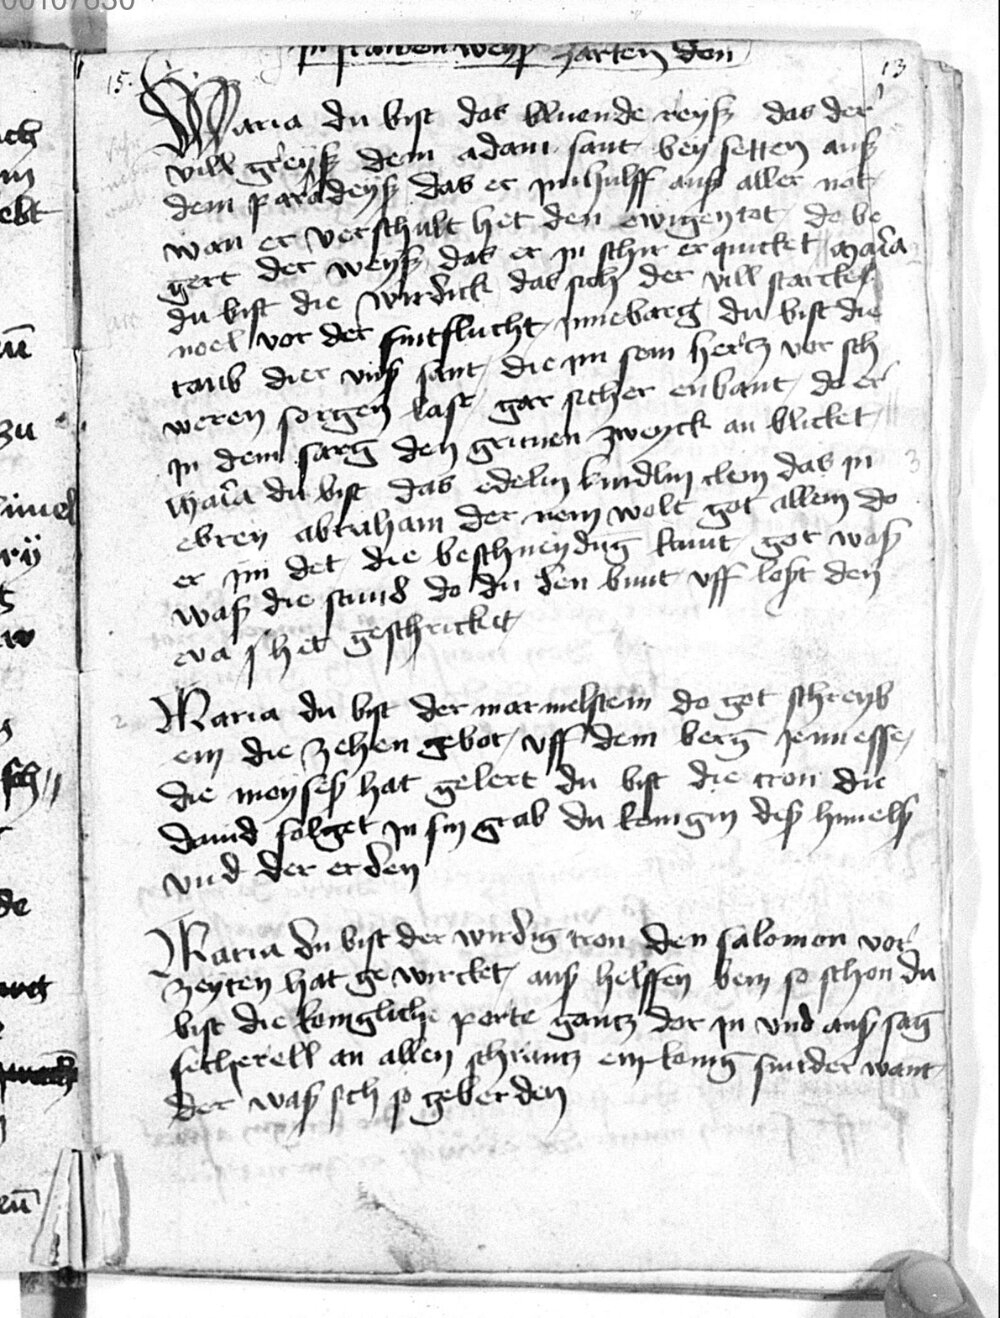 00107630
in frawen weyß zarten don
15. 13
Maria du bist das bluende reyß das der
vill greyß dem adam sant bey setten auß
dem paradeyß das er im hulff auß aller not
wan er verschult het den ewigen tot do be
gert der weyß das er in schir erquicket Maria
du bist die das sich der vill starcke
noel vor der sintflucht inne barg du bist die
taub die er auß sant die im sein hertz vor sch
weren sorgen last gar sicher enbant do er
in dem sarg den grunen zweyck an blicket
Maria du bist das edelin kindlin clein das in 3
ebrey abraham der rein wolt got allein do
er im det die beschneydung kunt got waß
waß die stund do du den bunt uff lost den
eva het gestricket
2 Maria du bist der marmelstein do got schreyb
ein die zehen gebot uff dem berg
die moyses hat gelert du bist die cron die
david folget in sin grab du konigin deß himelß
und der erden
Maria du bist der wirdig tron den salomon vor
zeyten hat gewircket auß helffen bein so schon du
bist die konigliche porte gantz dor in und auß
an allen schrantz ein konig sunder want
der waß sich so geberden